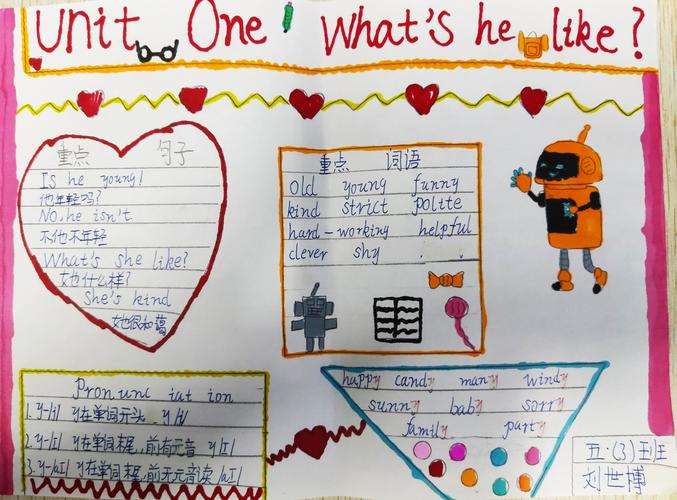 Unit One What's he like?
重点 句子
Is he young!
他年轻吗?
No, he isn't
不,他不年轻
What's she like?
她什么样?
She's kind
她很和蔼
重点 词语
Old young funny
kind strict polite
hard-working helpful
clever shy . .
Pronunc iat ion
1. y-/j/ y在单词开头 y/j/
2. y-/ɪ/ y在单词末尾,前有元音 y/ɪ/
3. y-/aɪ/ y在单词末尾,前无元音读/aɪ/
happy candy many windy
sunny baby sorry
family party
五·(3)班
刘世博